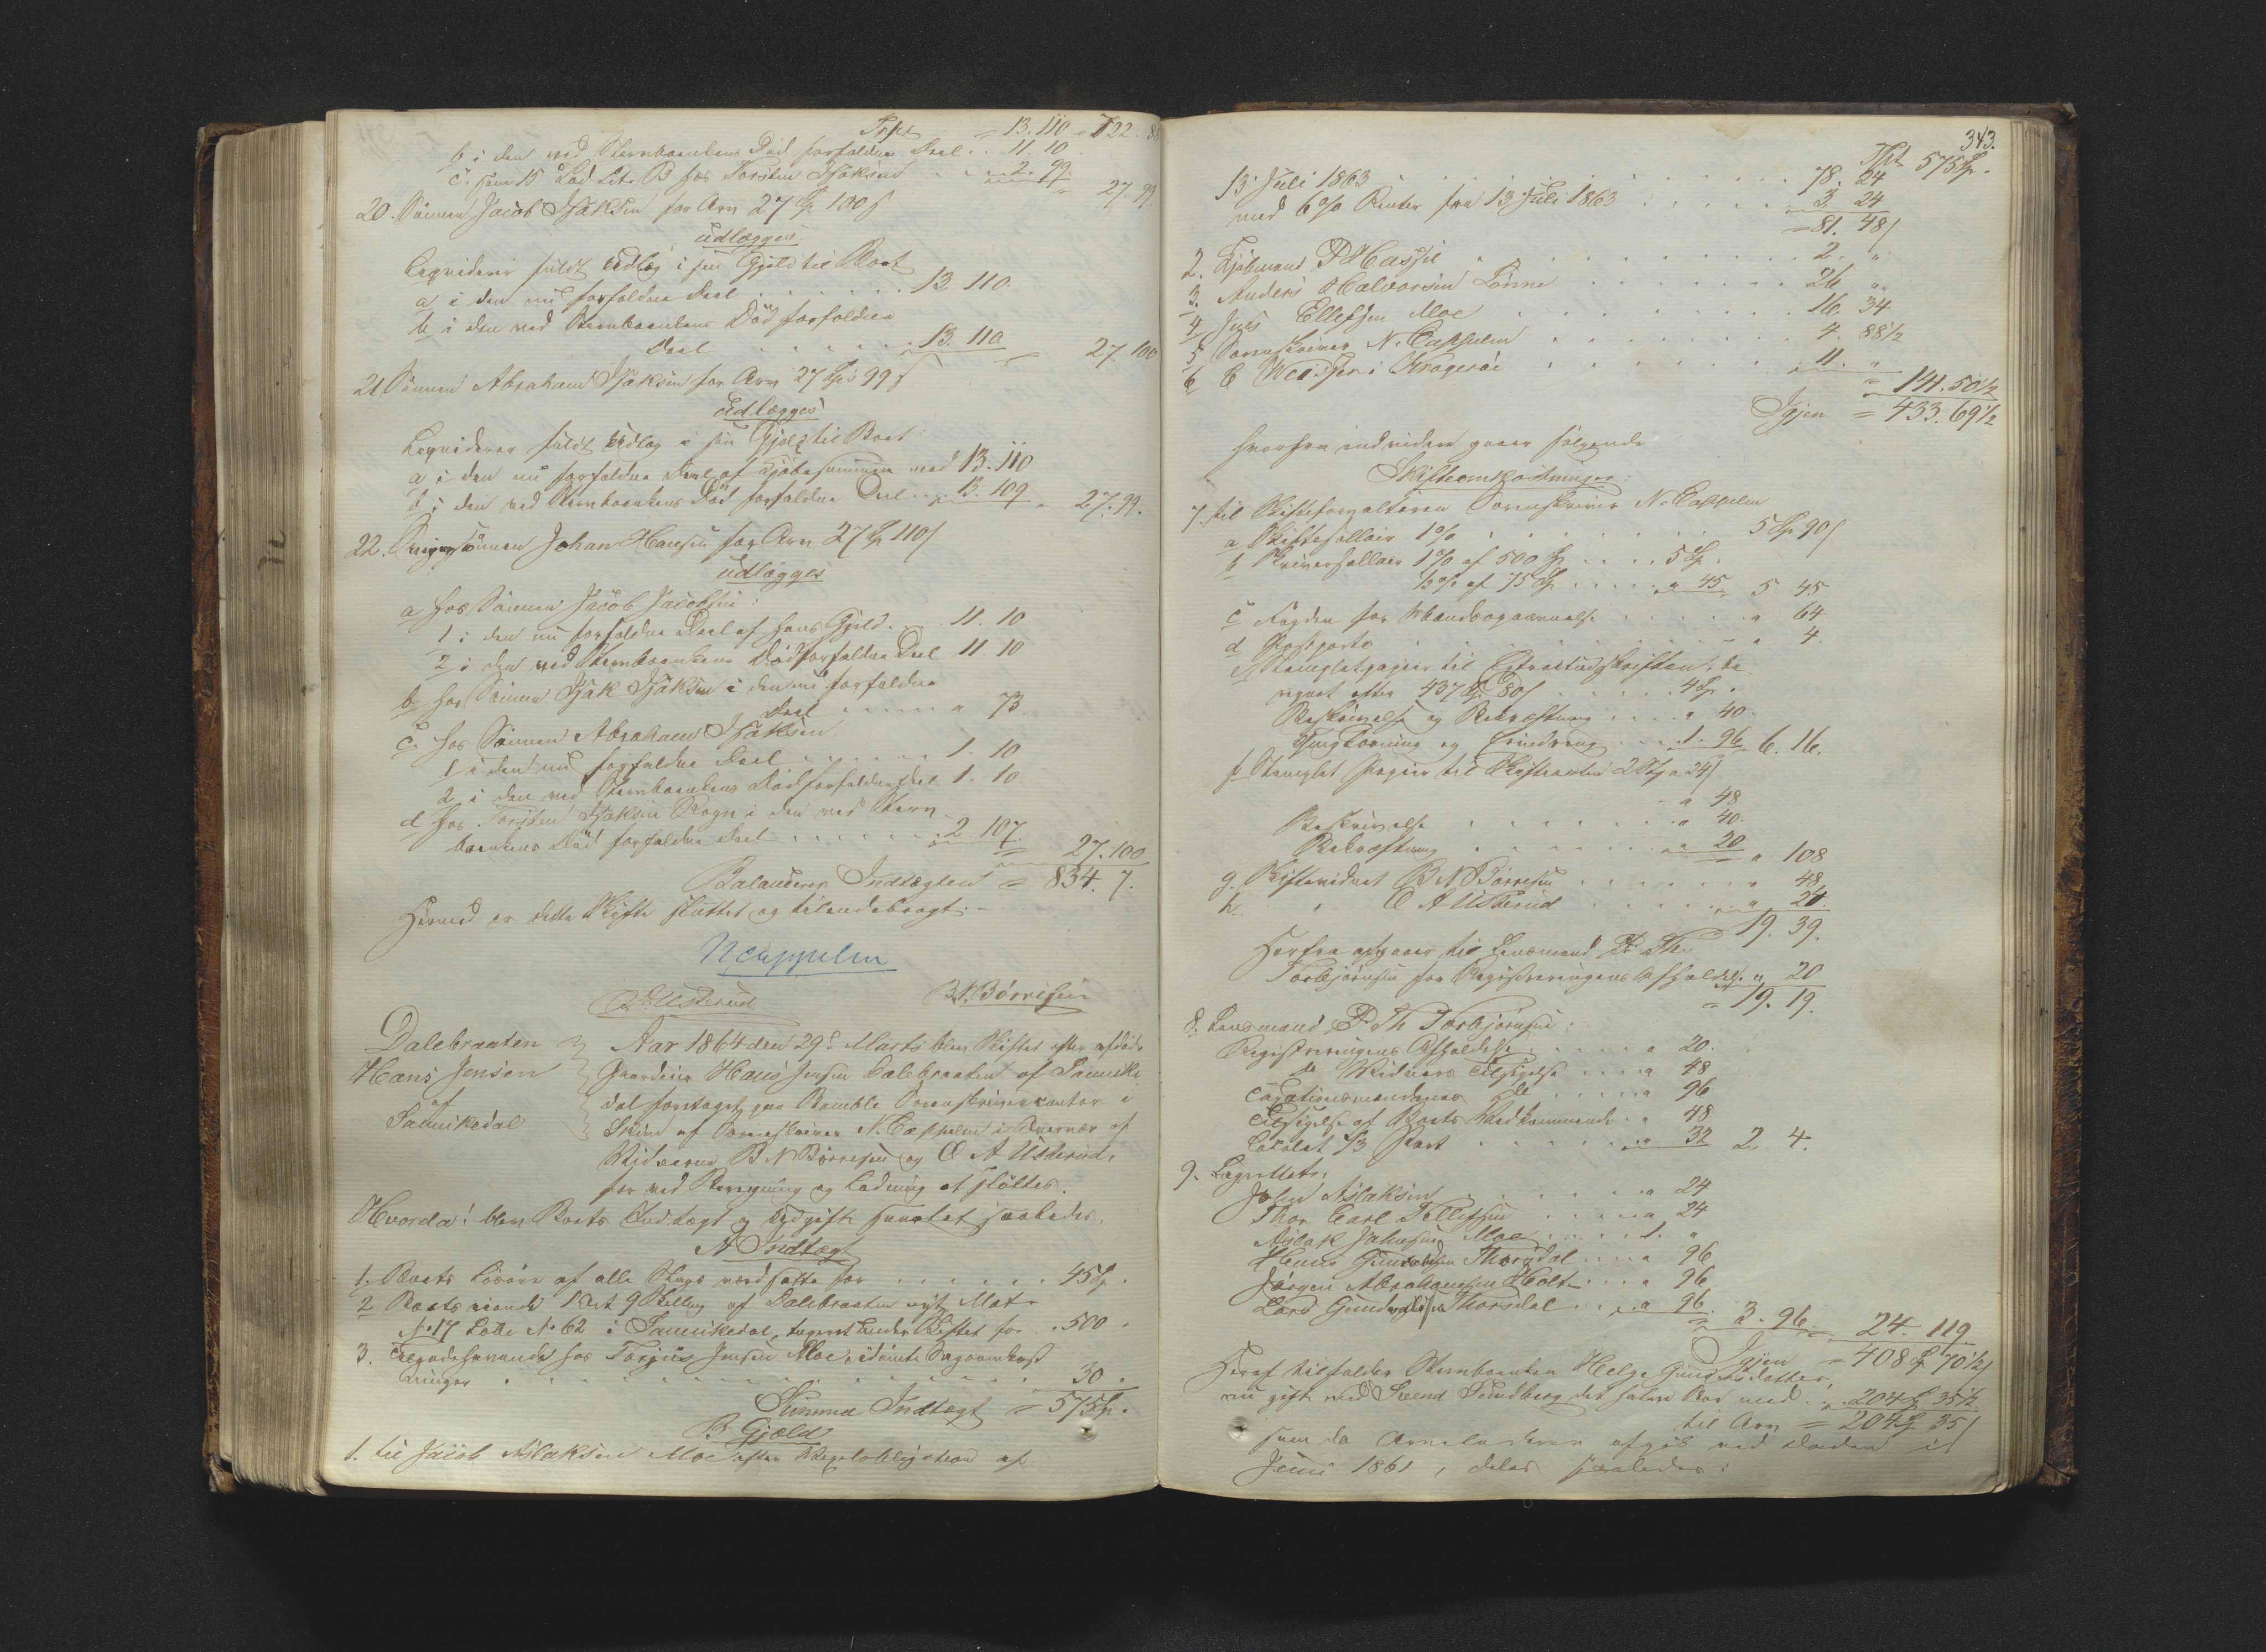 Tspt = 13. 110 = 722. 8
b i den ved Sternboenkens Död forfaldne Deel . . 11. 10
c. som 15 Lod Litr B hos Torsten Isaksen . . . 2. 99. = 27. 99.
20. Sönnen Jacob Isaksen for Arv 27 Sp 100 s
udlægges
Liqviderer fuldt Udlæg i sin Gjeld til Boet
a i den nu forfaldne Deel . . . . . . . 13. 110.
b i den ved Sternboenkens Död forfaldne
Deel . . . . . . 13. 110 = 27. 100
21 Sönnen Abraham Isaksen for Arv 27 Sp 99 s
Udlægges
Liqviderer fuldt Udlæg i sin Gjeld til Boet
a i den nu forfaldne Deel af Kjöbesummen med 13. 110
b i den ved Sternboenkens Död forfaldne Deel . . . 13. 109 = 27. 99.
22. Svigersönnen Johan Hansen for Arv 27 Sp 110 s
udlægges
a hos Sönnen Jacob Jacobsen:
1 i den nu forfaldne Deel af hans Gjeld . . . 11. 10
2 i den ved Sterboenkens Död forfaldne Deel 11. 10
b hos Sönnen Isak Isaksen i den nu forfaldne
Deel . . . . . " 73
c hos Sönnen Abraham Isaksen.
1 i den nu forfaldne Deel . . . . . . . 1. 10
2 i den ved Sterboenkens Död forfaldne Deel 1. 10
d hos Torsten Isaksen Rogn i den ved Sterv
boenkens Död forfaldne Deel . . . . . . . 2. 107. = 27. 100
Balancerer Indtægten = 834. 7.
Hermed er dette Skifte sluttet og tilendebragt. -
N Cappelen
O A Usterud B. N. Börresen
Dalebraaten
Hans Jensen
af
Sannikedal
Aar 1864 den 29de Marts blev Skiftet efter afdöde
Gaardeier Hans Jensen Dalebraaten af Sannike
dal foretaget paa Bamble Sorenskriverkontor i
Skien af Sorenskriver N. Cappelen i Overvær af
Vidnerne B N Börresen og O A Usterud,
for ved Beregning og Lodning at sluttes.
Hvorda! blev Boets Indtægt og Udgift samlet saaledes.
A Indtægt
1. Boets Lösöre af alle Slags værdsatte for . . . . . . 45 Sp.
2 Boets eiende 1 Ort 9 Skilling af Dalebraaten nye Mat.
No 17 Löbe No 62 i Sannikedal, tagert under Skiftet for . . 500 .
3. Tilgodehavende hos Torjus Jensen Moe, idömte Sagsomkost
ninger . . . . . . . . . . . . 30 .
Summa Indtægt = 575 Sp.
B Gjeld
1. til Jacob Aslaksen Moe efter Vexelobligation af
343.
Tspt 575 Sp.
13 Juli 1863 . . . . . . . . . . . . 78. 24
med 6 % Renter fra 13 Juli 1863 . . . . . 3. 24
= 81. 48 s
2. Kjöbmand P Hassel . . . . . . . . . 2. "
3. Anders Halvorsen Lönne . . . . . . . . 26 "
4 Jens Ellefsen Moe . . . . . . . . 16. 34
5 Sorenskriver N. Cappelen . . . . . . . 4. 88 1/2
6 C Weisser i Kragerøe . . . . . . . 11. " = 141. 50 1/2
Igjen = 433. 69 1/2
hvorfra endvidere gaaer følgende
Skifteomkostninger:
7. til Skifteforvalteren Sorenskriver N. Cappelen
a Skiftesallair 1 % . . . . . . . . . . 5 Sp 90 s
b Skriversallair 1 % af 500 Sp . . . . 5 Sp.
1/2 % af 75 Sp . . . . . " 45. 5. 45
c Fogden for Skiftets Nærværelse . . . . . " 64
d Postporto . . . . . . . . . . . . " 4.
e Stemplet Papir til Extractudskriften, be
regnet efter 437 Sp 80 s . . . . . 4 Sp.
Beskrivelse og Bekræftning . . . " 40.
Tinglæsning og Erindring . . . 1. 96. 6. 16.
f Stemplet Papir til Skifteacten 2 Stp a 24 s
" 48
Beskrivelse . . . . . . . . . " 40.
Bekræftning . . . . . . . . " 20 = " 108
g. Skiftevidnet B N Börresen . . . . . . " 48
h. " O A Usterud . . . . . . . " 24.
19. 39.
Herfra afgaaer til Lensmand P. Th.
Torbjörnsen for Registreringens Afholdelse " 20
= 19. 19.
8. Lensmand P. Th Torbjörnsen:
Registreringens Afholdelse . . . . . " 20.
2e Vidners Tilsigelse . . . . . " 48
Taxationsmændenes Do . . . . . " 96
Tilsigelse af Boets Vedkommende . . " 48
Localet 1/3 Part . . . . . . . " 32 2. 4.
9. Laugrettet:
John Aslaksen . . . . . . . . " 24
Thor Carl Tellefsen . . . . . " 24
Aslak Johnsen Moe . . . . . 1. "
Hans Gundersen Thorsdal . . . " 96
Jörgen Abrahamsen Holte . . . " 96
Lars Gundersen Thorsdal . . . " 96. = 3. 96. = 24. 119
Igjen = 408 Sp 70 1/2 s
Heraf tilfalder Sterboenken Helge Gundersdatter,
nu gift med Svend Sundberg det halve Bo med . . 204 Sp 35 1/2
til Arv = 204 Sp 35 s
som da Arveladeren afgik ved Döden i
Juni 1861, deles saaledes: